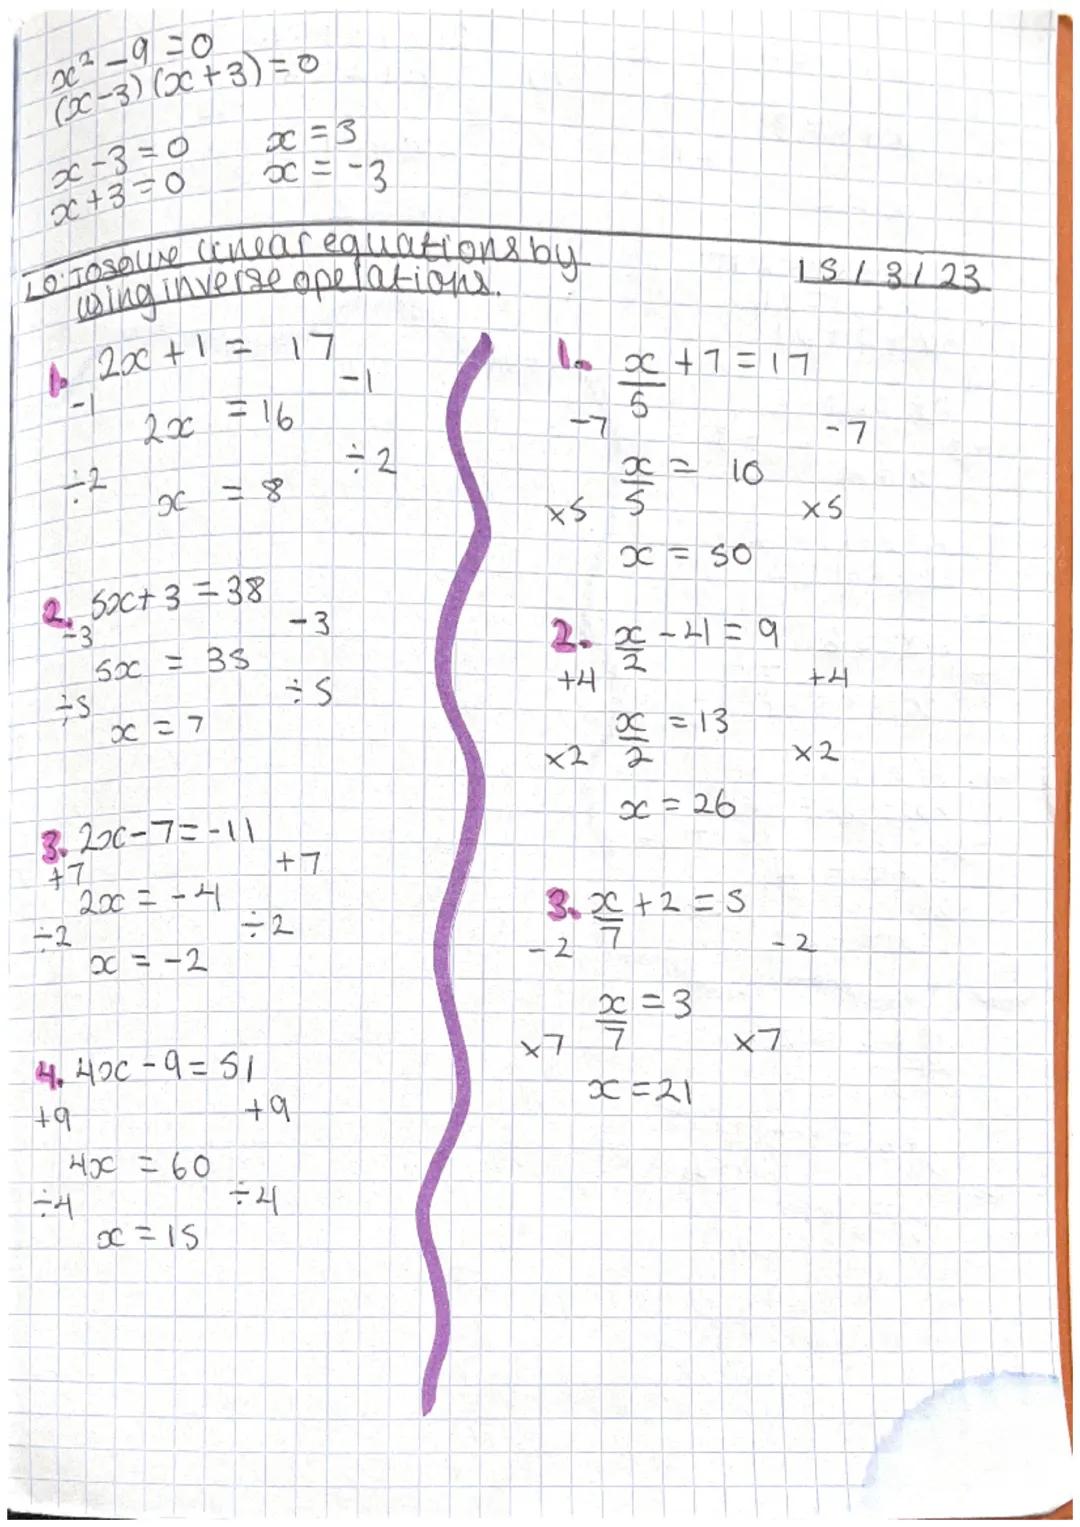 x² - 9 = 0
(x-3)(x+3) = 0
x - 3 = 0 x = 3
x + 3 = 0 x = -3
LO: To solve linear equations by
using inverse operations.
15/3/23
1. 2x + 1 = 17
-1 -1
2x = 16
÷2 ÷2
x = 8
2. 5x + 3 = 38
-3 -3
5x = 35
÷5 ÷5
x = 7
3. 2x - 7 = -11
+7 +7
2x = -4
÷2 ÷2
x = -2
4. 4x - 9 = 51
+9 +9
4x = 60
÷4 ÷4
x = 15
1. x/5 + 7 = 17
-7 -7
x/5 = 10
x5 x5
x = 50
2. x/2 - 4 = 9
+4 +4
x/2 = 13
x2 x2
x = 26
3. x/7 + 2 = 5
-2 -2
x/7 = 3
x7 x7
x = 21